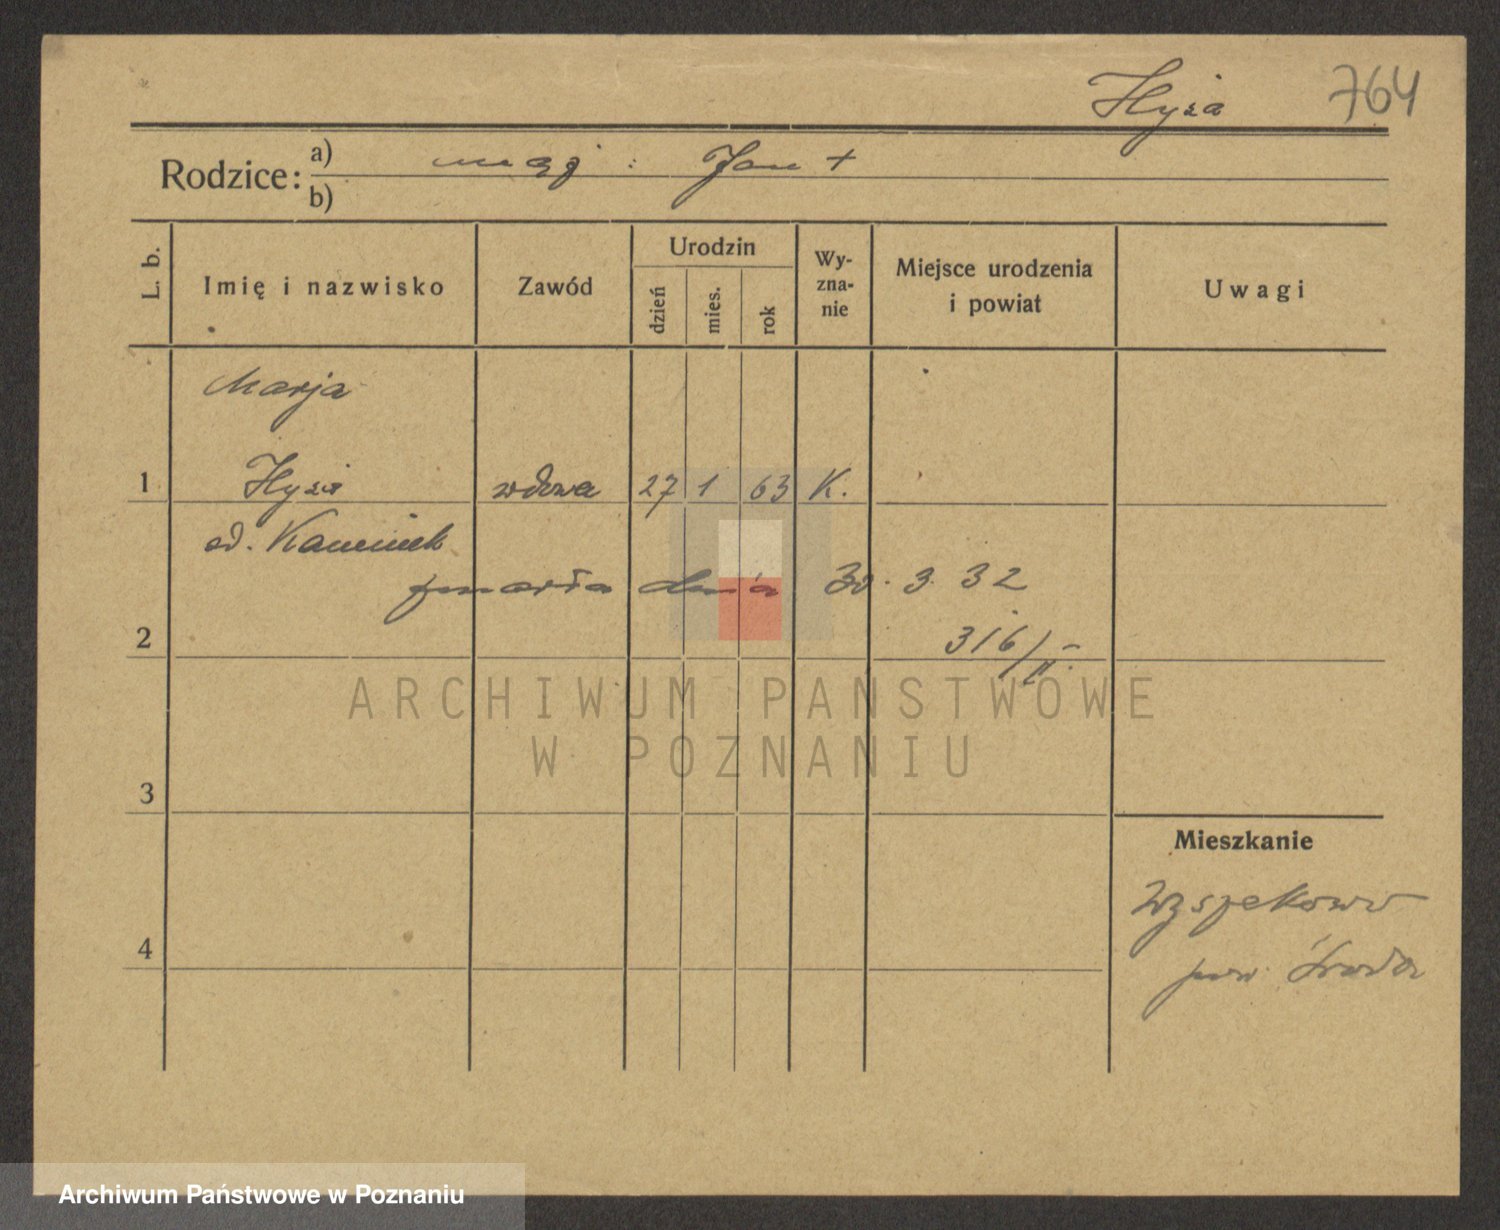 Hyża 764
Rodzice: a) mąż : Jan +
b)
L. b. Imię i nazwisko Zawód Urodzin dzień mies. rok Wy-zna-nie Miejsce urodzenia i powiat Uwagi
Marja
1 Hyża wdowa 27 1 63 K.
od. Kaminiek
zmarła dnia 30. 3. 32
2 316/II.
ARCHIWUM PAŃSTWOWE
W POZNANIU
3
Mieszkanie
4
pow. Środa
Archiwum Państwowe w Poznaniu